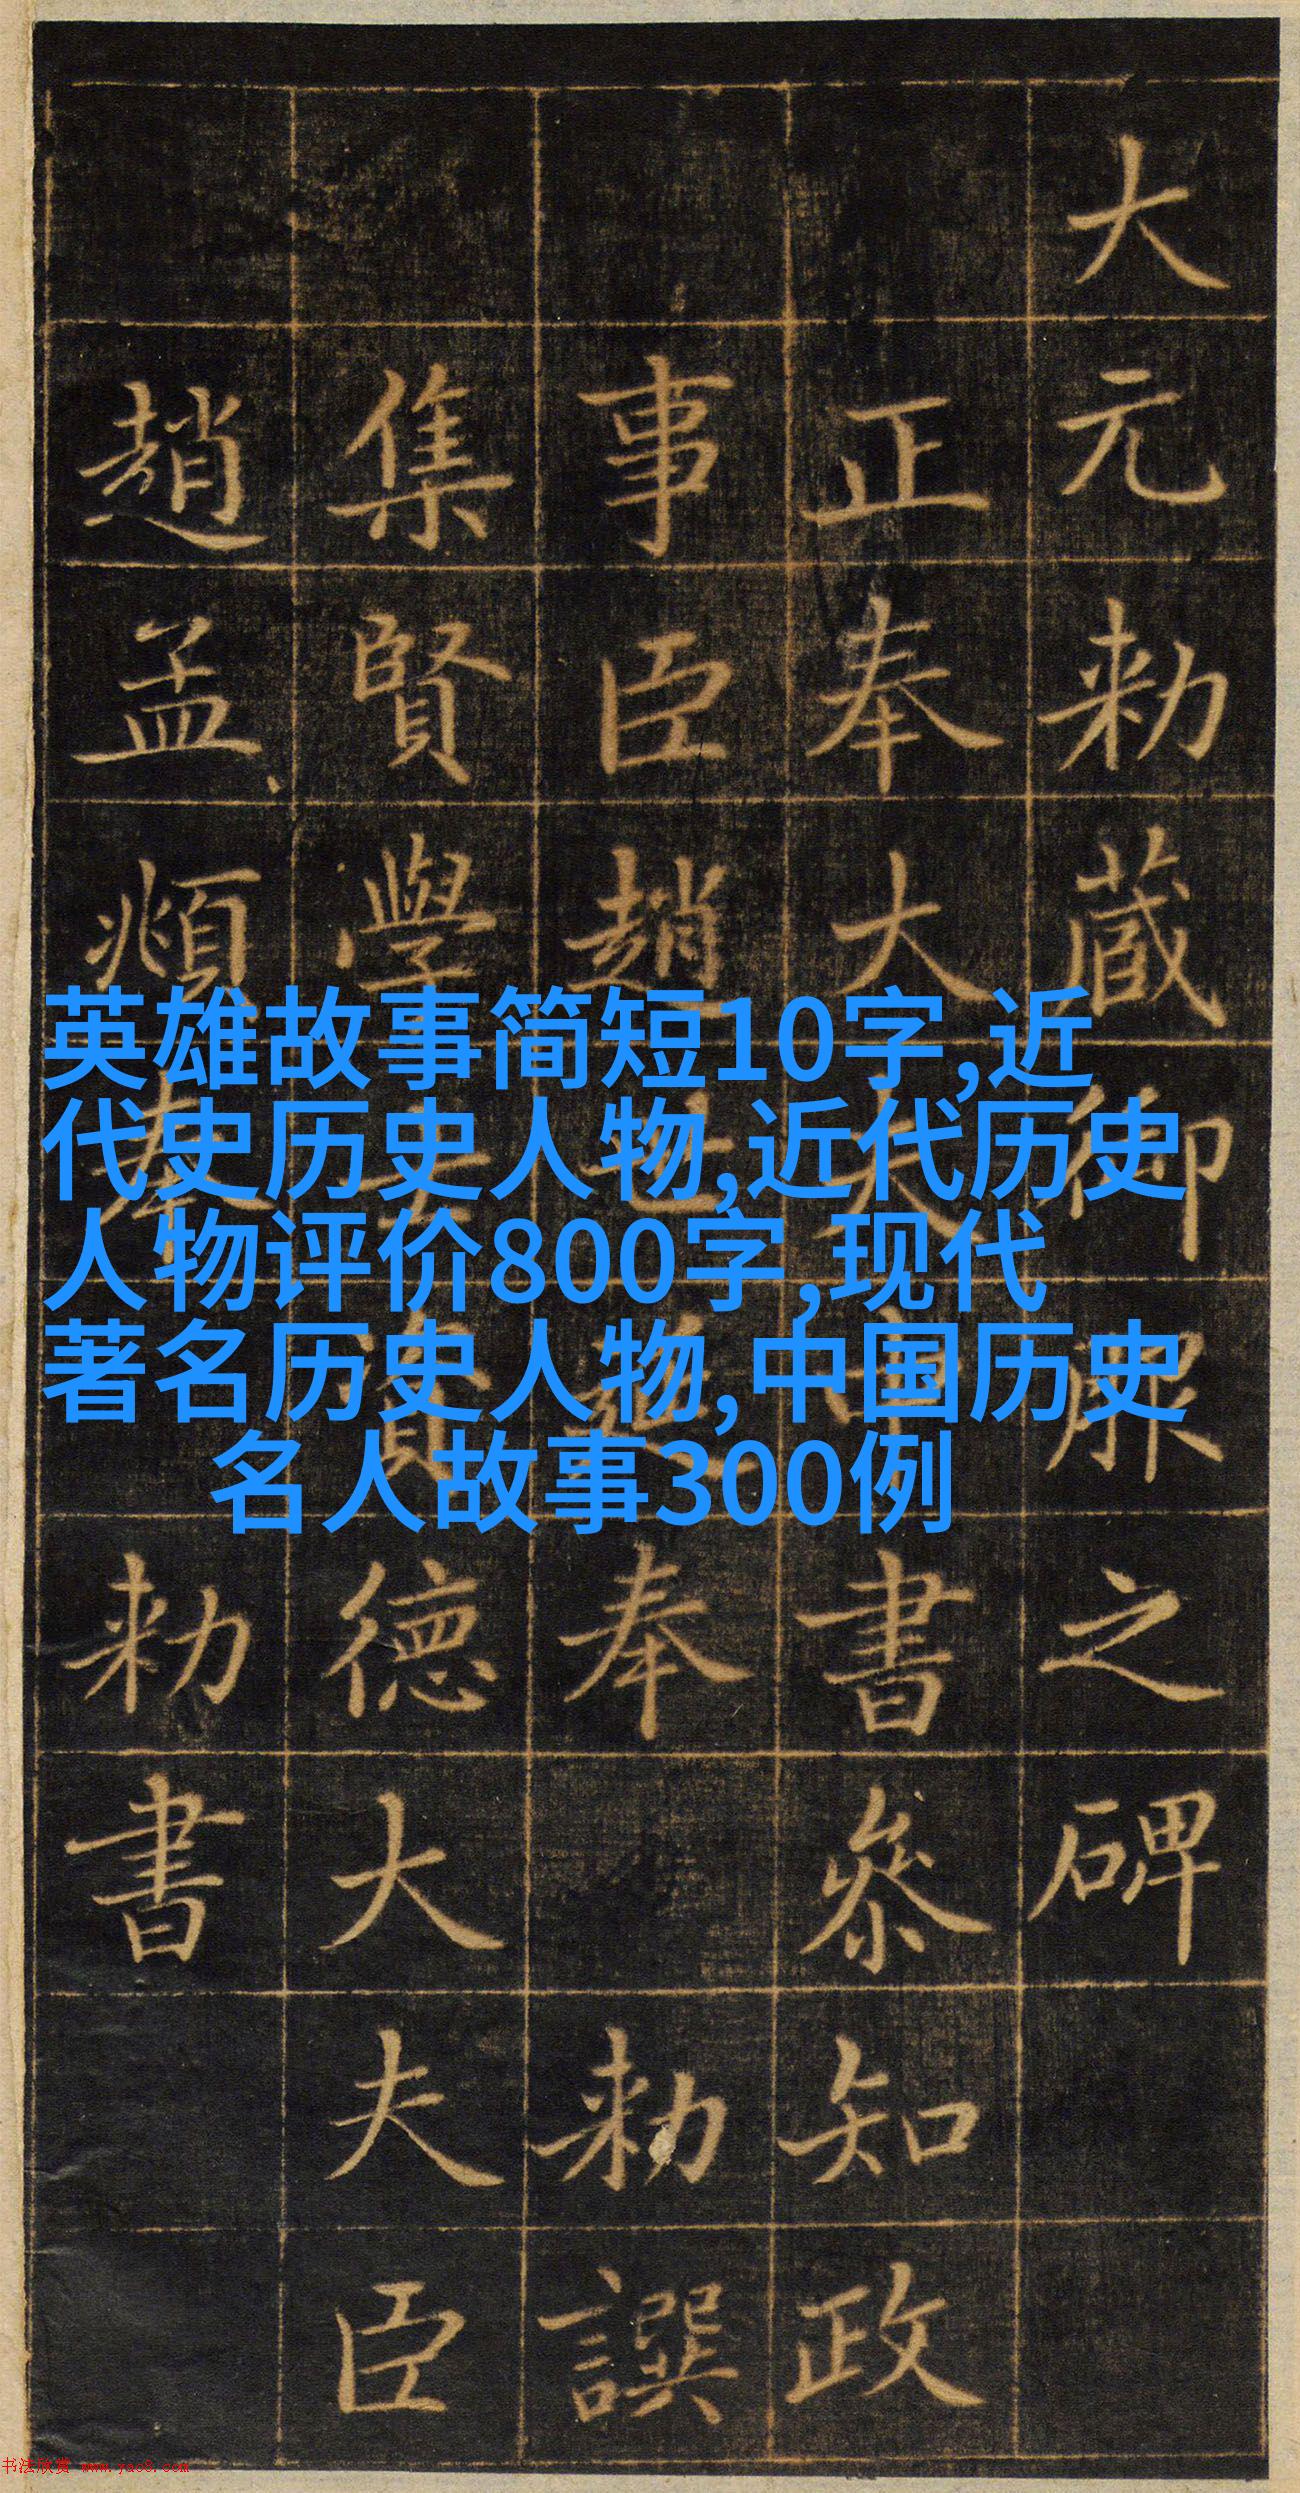 大元勑藏御服之碑
正奉大夫中書參知政
事臣趙世延奉 勑譔
集賢學士資德大夫臣
趙孟頫奉勑書
英雄故事简短10字,近
代史历史人物,近代历史
人物评价800字,现代
著名历史人物,中国历史
名人故事300例
书法欣赏 www.yac8.com